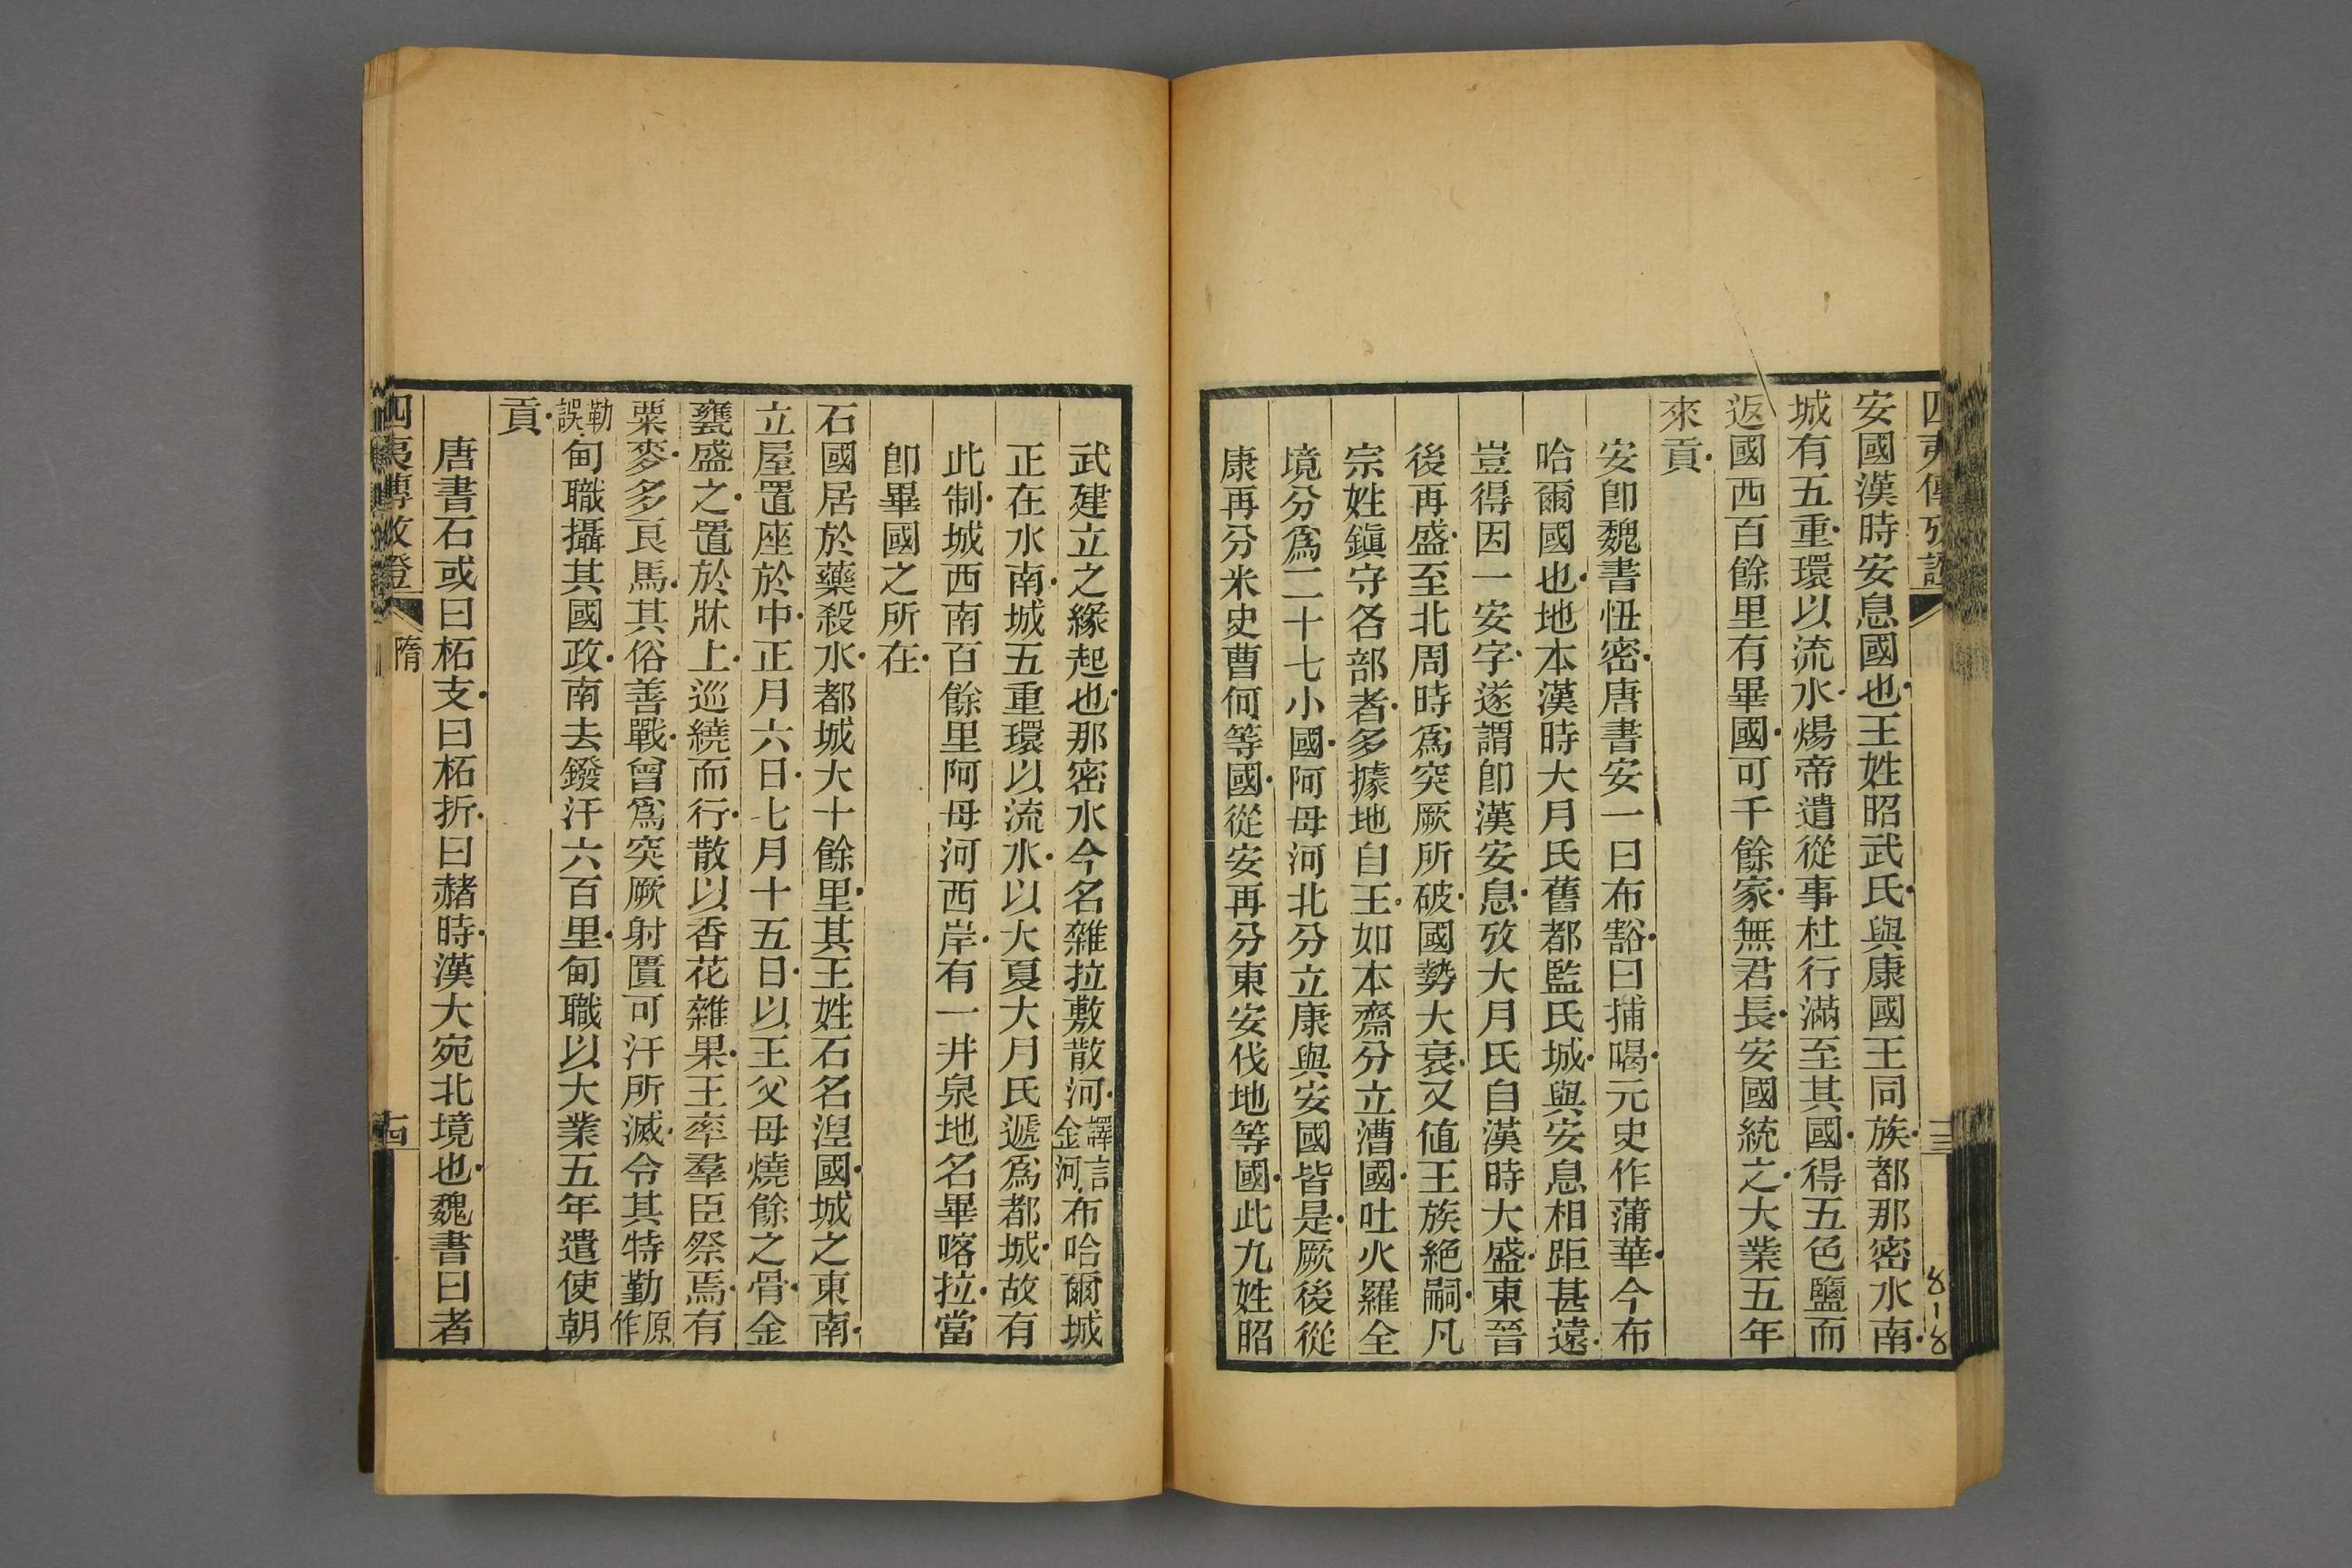 四夷傳攷證
三
8-8
安國漢時安息國也王姓昭武氏與康國王同族都那密水南
城有五重環以流水煬帝遣從事杜行滿至其國得五色鹽而
返國西百餘里有畢國可千餘家無君長安國統之大業五年
來貢
安卽魏書忸密唐書安一曰布豁曰捕喝元史作蒲華今布
哈爾國也地本漢時大月氏舊都監氏城與安息相距甚遠
豈得因一安字遂謂卽漢安息攷大月氏自漢時大盛東晉
後再盛至北周時爲突厥所破國勢大衰又値王族絕嗣凡
宗姓鎭守各部者多據地自王如本齋分立漕國吐火羅全
境分爲二十七小國阿母河北分立康與安國皆是厥後從
康再分米史曹何等國從安再分東安伐地等國此九姓昭
武建立之緣起也那密水今名雜拉敷散河譯言金河布哈爾城
正在水南城五重環以流水以大夏大月氏遞爲都城故有
此制城西南百餘里阿母河西岸有一井泉地名畢喀拉當
卽畢國之所在
石國居於藥殺水都城大十餘里其王姓石名涅國城之東南
立屋置座於中正月六日七月十五日以王父母燒餘之骨金
甕盛之置於牀上巡繞而行散以香花雜果王率羣臣祭焉有
粟麥多良馬其俗善戰曾爲突厥射匱可汗所滅令其特勤原作
勒誤甸職攝其國政南去鏺汗六百里甸職以大業五年遣使朝
貢
唐書石或曰柘支曰柘折曰赭時漢大宛北境也魏書曰者
四夷傳攷證
隋
十四